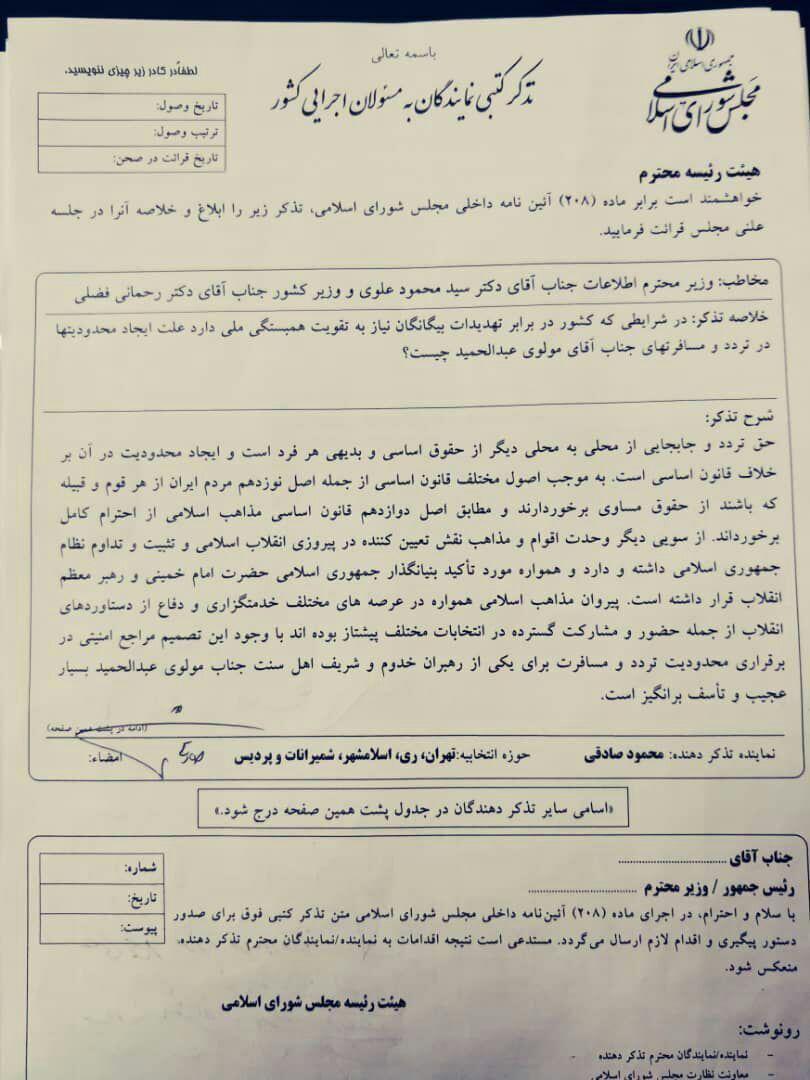 باسمه تعالی
جمهوری اسلامی ایران
مجلس شورای اسلامی
تذکر کتبی نمایندگان به مسئولان اجرایی کشور
لطفاً در کادر زیر چیزی ننویسید.
تاریخ وصول:
ترتیب وصول:
تاریخ قرائت در صحن:
هیئت رئیسه محترم
خواهشمند است برابر ماده (۲۰۸) آئین نامه داخلی مجلس شورای اسلامی، تذکر زیر را ابلاغ و خلاصه آنرا در جلسه
علنی مجلس قرائت فرمایید.
مخاطب: وزیر محترم اطلاعات جناب آقای دکتر سید محمود علوی و وزیر کشور جناب آقای دکتر رحمانی فضلی
خلاصه تذکر: در شرایطی که کشور در برابر تهدیدات بیگانگان نیاز به تقویت همبستگی ملی دارد علت ایجاد محدودیتها
در تردد و مسافرتهای جناب آقای مولوی عبدالحمید چیست؟
شرح تذکر:
حق تردد و جابجایی از محلی به محلی دیگر از حقوق اساسی و بدیهی هر فرد است و ایجاد محدودیت در آن بر
خلاف قانون اساسی است. به موجب اصول مختلف قانون اساسی از جمله اصل نوزدهم مردم ایران از هر قوم و قبیله
که باشند از حقوق مساوی برخوردارند و مطابق اصل دوازدهم قانون اساسی مذاهب اسلامی از احترام کامل
برخورداند. از سویی دیگر وحدت اقوام و مذاهب نقش تعیین کننده در پیروزی انقلاب اسلامی و تثبیت و تداوم نظام
جمهوری اسلامی داشته و دارد و همواره مورد تأکید بنیانگذار جمهوری اسلامی حضرت امام خمینی و رهبر معظم
انقلاب قرار داشته است. پیروان مذاهب اسلامی همواره در عرصه های مختلف خدمتگزاری و دفاع از دستاوردهای
انقلاب از جمله حضور و مشارکت گسترده در انتخابات مختلف پیشتاز بوده اند با وجود این تصمیم مراجع امنیتی در
برقراری محدودیت تردد و مسافرت برای یکی از رهبران خدوم و شریف اهل سنت جناب مولوی عبدالحمید بسیار
عجیب و تأسف برانگیز است.
(ادامه در پشت همین صفحه)
نماینده تذکر دهنده: محمود صادقی حوزه انتخابیه:تهران، ری، اسلامشهر، شمیرانات و پردیس امضاء:
«اسامی سایر تذکر دهندگان در جدول پشت همین صفحه درج شود.»
جناب آقای ................................
رئیس جمهور / وزیر محترم ................................
شماره:
تاریخ:
پیوست:
با سلام و احترام، در اجرای ماده (۲۰۸) آئین‌نامه داخلی مجلس شورای اسلامی متن تذکر کتبی فوق برای صدور
دستور پیگیری و اقدام لازم ارسال می‌گردد. مستدعی است نتیجه اقدامات به نماینده/نمایندگان محترم تذکر دهنده،
منعکس شود.
هیئت رئیسه مجلس شورای اسلامی
رونوشت:
- نماینده/نمایندگان محترم تذکر دهنده
- معاونت نظارت مجلس شورای اسلامی